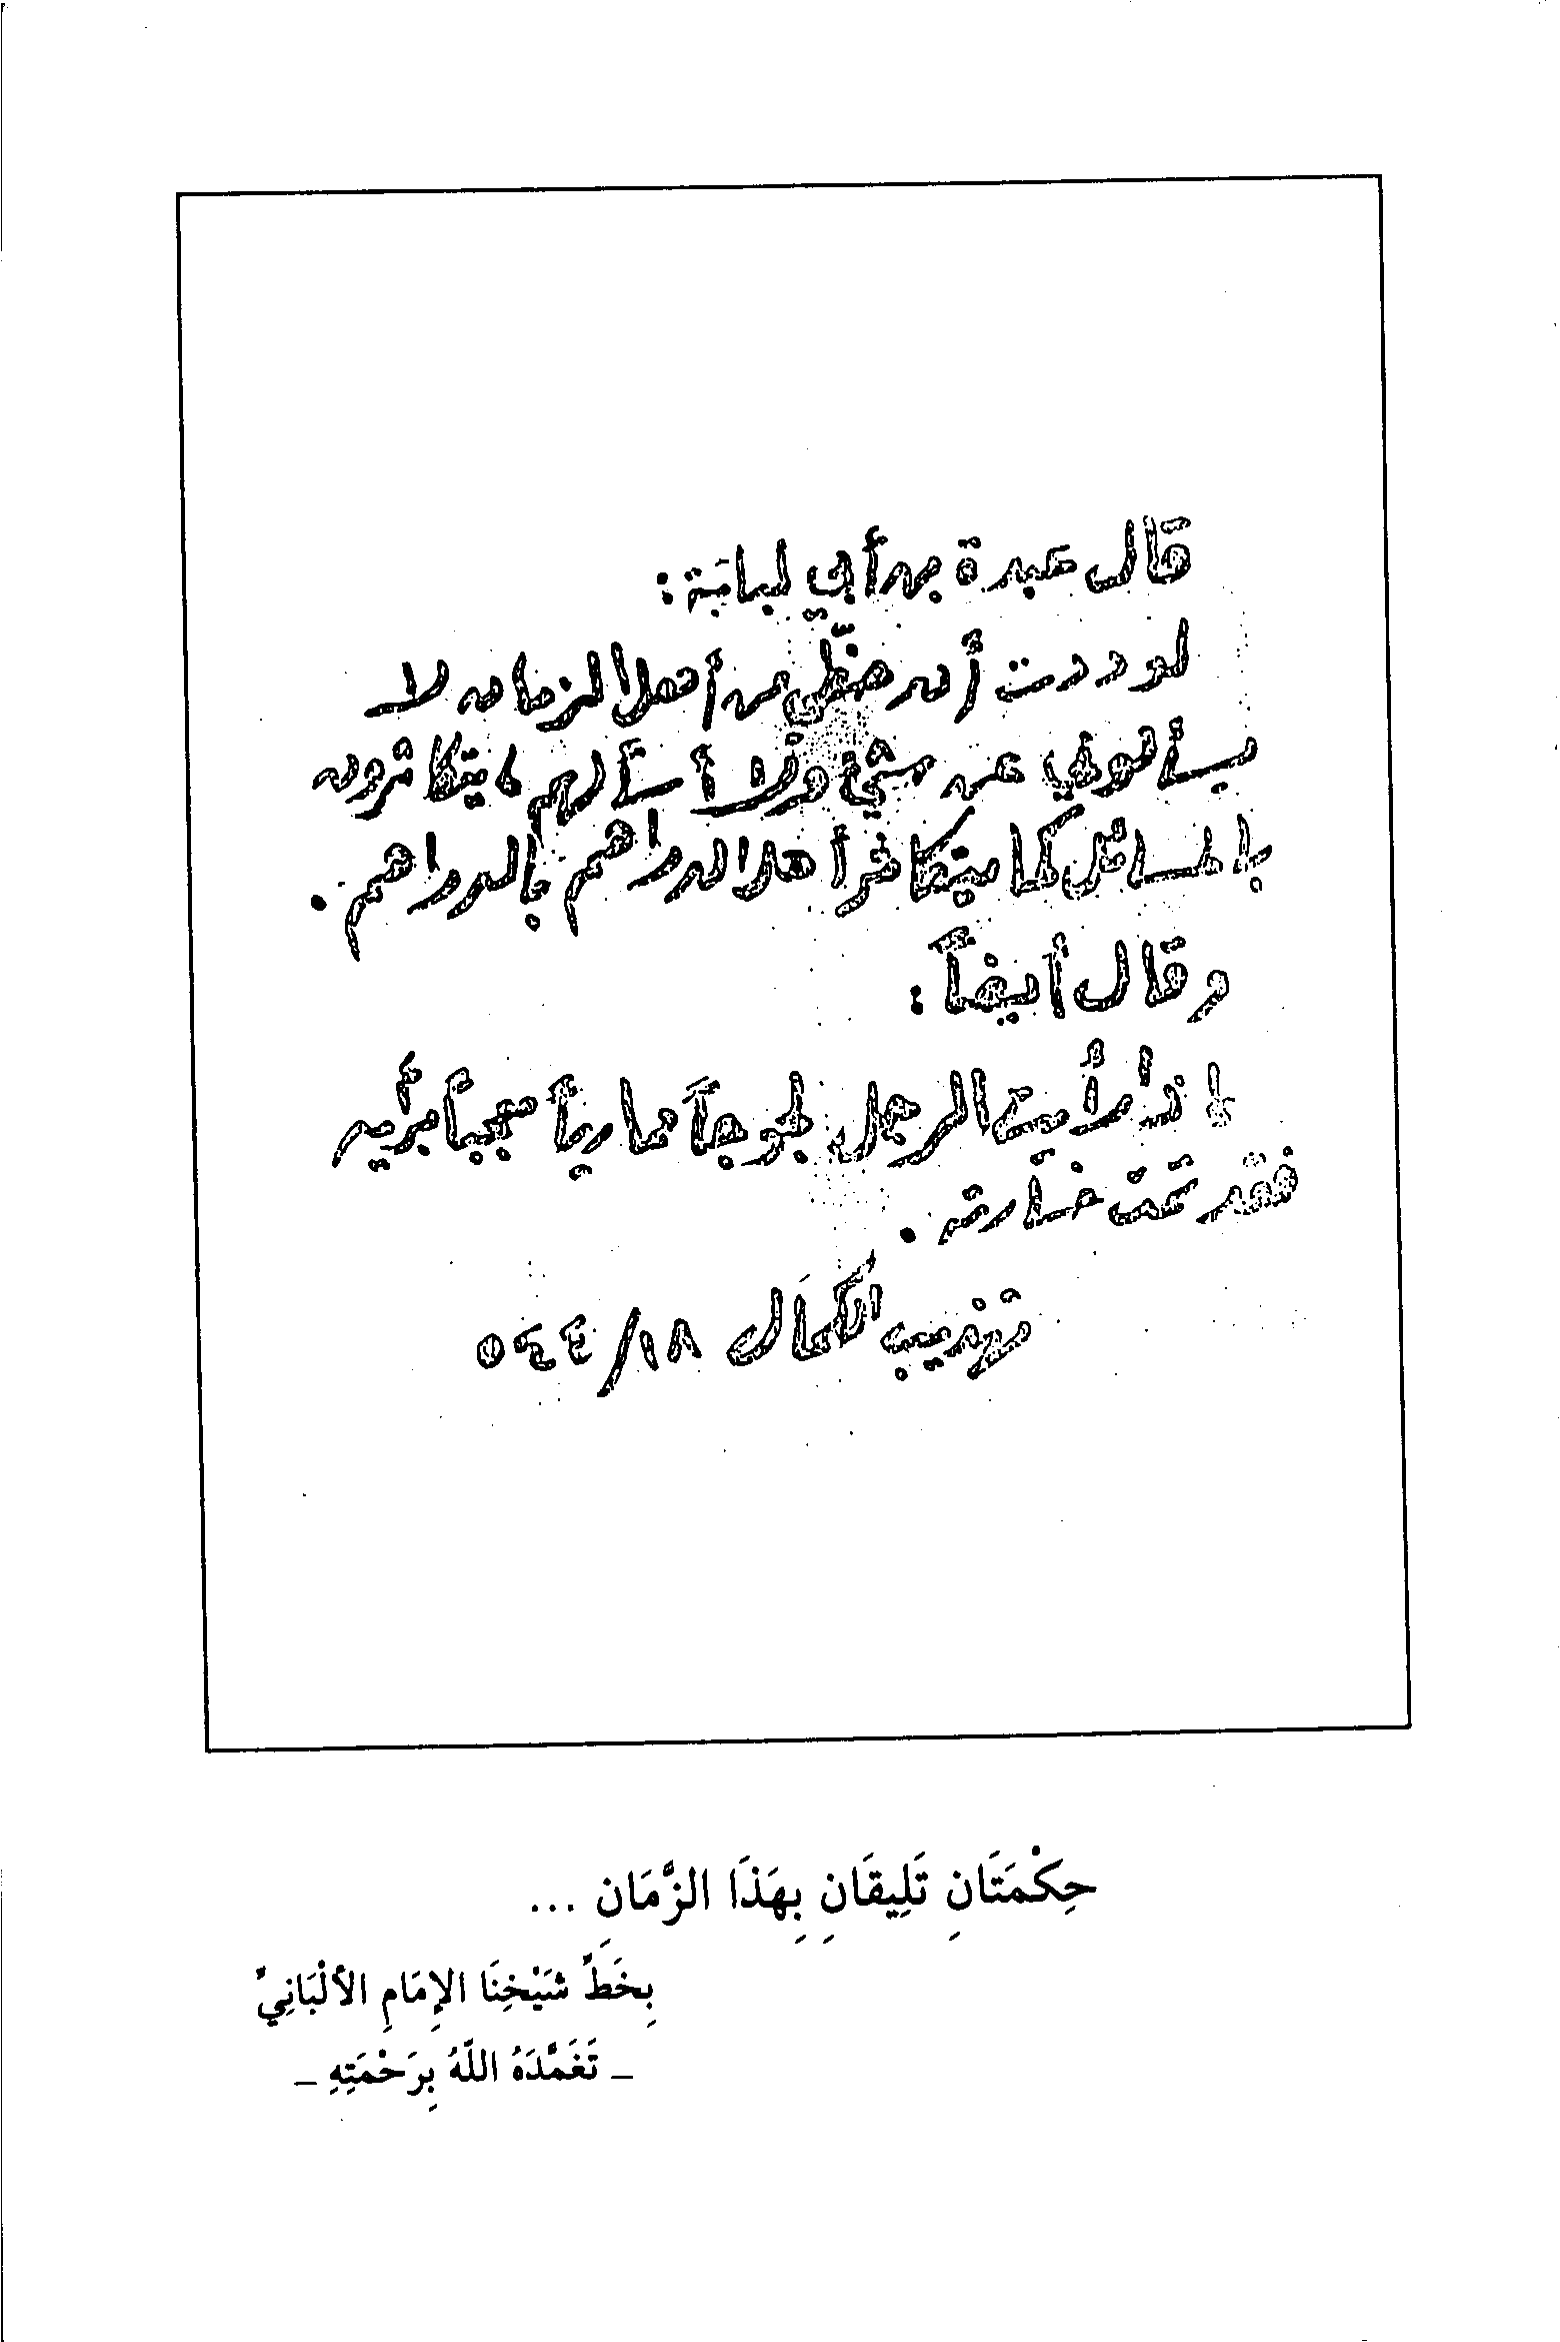 قال عبدة بن أبي لبابة :
لوددت أن حظّي من أهل الزمان لا
يسألوني عن شيء ولا أسألهم ، يتكاثرون
بالمسائل كما يتكاثر أهل الدراهم بالدراهم .
وقال أيضاً :
إذا رأيت الرجل لجوجاً ممارياً معجباً برأيه
فقد تمت خسارته .
تهذيب الكمال ١٨/ ٥٤٤
حِكْمَتَانِ تَلِيقَانِ بِهَذَا الزَّمَانِ ...
بِخَطِّ شَيْخِنَا الإِمَامِ الأَلْبَانِيِّ
_ تَغَمَّدَهُ اللَّهُ بِرَحْمَتِهِ _